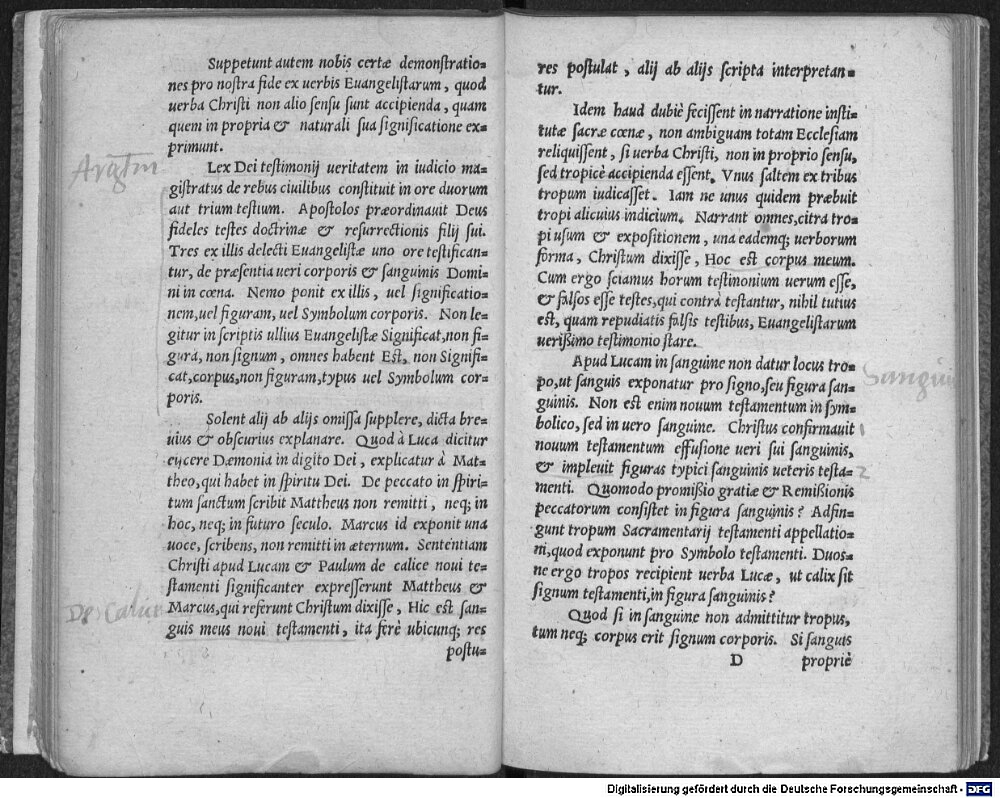 Suppetunt autem nobis certæ demonstratio=
nes pro nostra fide ex uerbis Euangelistarum, quod
uerba Christi non alio sensu sunt accipienda, quam
quem in propria & naturali sua significatione ex=
primunt.
Lex Dei testimonij ueritatem in iudicio ma=
gistratus de rebus ciuilibus constituit in ore duorum
aut trium testium. Apostolos præordinauit Deus
fideles testes doctrinæ & resurrectionis filij sui.
Tres ex illis delecti Euangelistæ uno ore testifican=
tur, de præsentia ueri corporis & sanguinis Domi=
ni in cœna. Nemo ponit ex illis, uel significatio=
nem, uel figuram, uel Symbolum corporis. Non le=
gitur in scriptis ullius Euangelistæ Significat, non fi=
gura, non signum, omnes habent Est, non Signifi=
cat, corpus, non figuram, typus uel Symbolum cor=
poris.
Solent alij ab alijs omissa supplere, dicta bre=
uius & obscurius explanare. Quod à Luca dicitur
eijcere Dæmonia in digito Dei, explicatur à Mat=
theo, qui habet in spiritu Dei. De peccato in spiri=
tum sanctum scribit Mattheus non remitti, neq; in
hoc, neq; in futuro seculo. Marcus id exponit una
uoce, scribens, non remitti in æternum. Sententiam
Christi apud Lucam & Paulum de calice noui te=
stamenti significanter expresserunt Mattheus &
De Calice
Marcus, qui referunt Christum dixisse, Hic est san=
guis meus noui testamenti, ita ferè ubicunq; res
postu=
res postulat, alij ab alijs scripta interpretan=
tur.
Idem haud dubiè fecissent in narratione insti=
tutæ sacræ cœnæ, non ambiguam totam Ecclesiam
reliquissent, si uerba Christi, non in proprio sensu,
sed tropicè accipienda essent. Vnus saltem ex tribus
tropum iudicasset. Iam ne unus quidem præbuit
tropi alicuius indicium. Narrant omnes, citra tro=
pi usum & expositionem, una eademq; uerborum
forma, Christum dixisse, Hoc est corpus meum.
Cum ergo sciamus horum testimonium uerum esse,
& falsos esse testes, qui contrà testantur, nihil tutius
est, quam repudiatis falsis testibus, Euangelistarum
uerißimo testimonio stare.
Apud Lucam in sanguine non datur locus tro=
po, ut sanguis exponatur pro signo, seu figura san=
guinis. Non est enim nouum testamentum in sym=
bolico, sed in uero sanguine. Christus confirmauit
nouum testamentum effusione ueri sui sanguinis,
& impleuit figuras typici sanguinis ueteris testa=
menti. Quomodo promißio gratiæ & Remißionis
peccatorum consistet in figura sanguinis? Adfin=
gunt tropum Sacramentarij testamenti appellatio=
ni, quod exponunt pro Symbolo testamenti. Duos=
ne ergo tropos recipient uerba Lucæ, ut calix sit
signum testamenti, in figura sanguinis?
Quod si in sanguine non admittitur tropus,
tum neq; corpus erit signum corporis. Si sanguis
D propriè
Digitalisierung gefördert durch die Deutsche Forschungsgemeinschaft - DFG